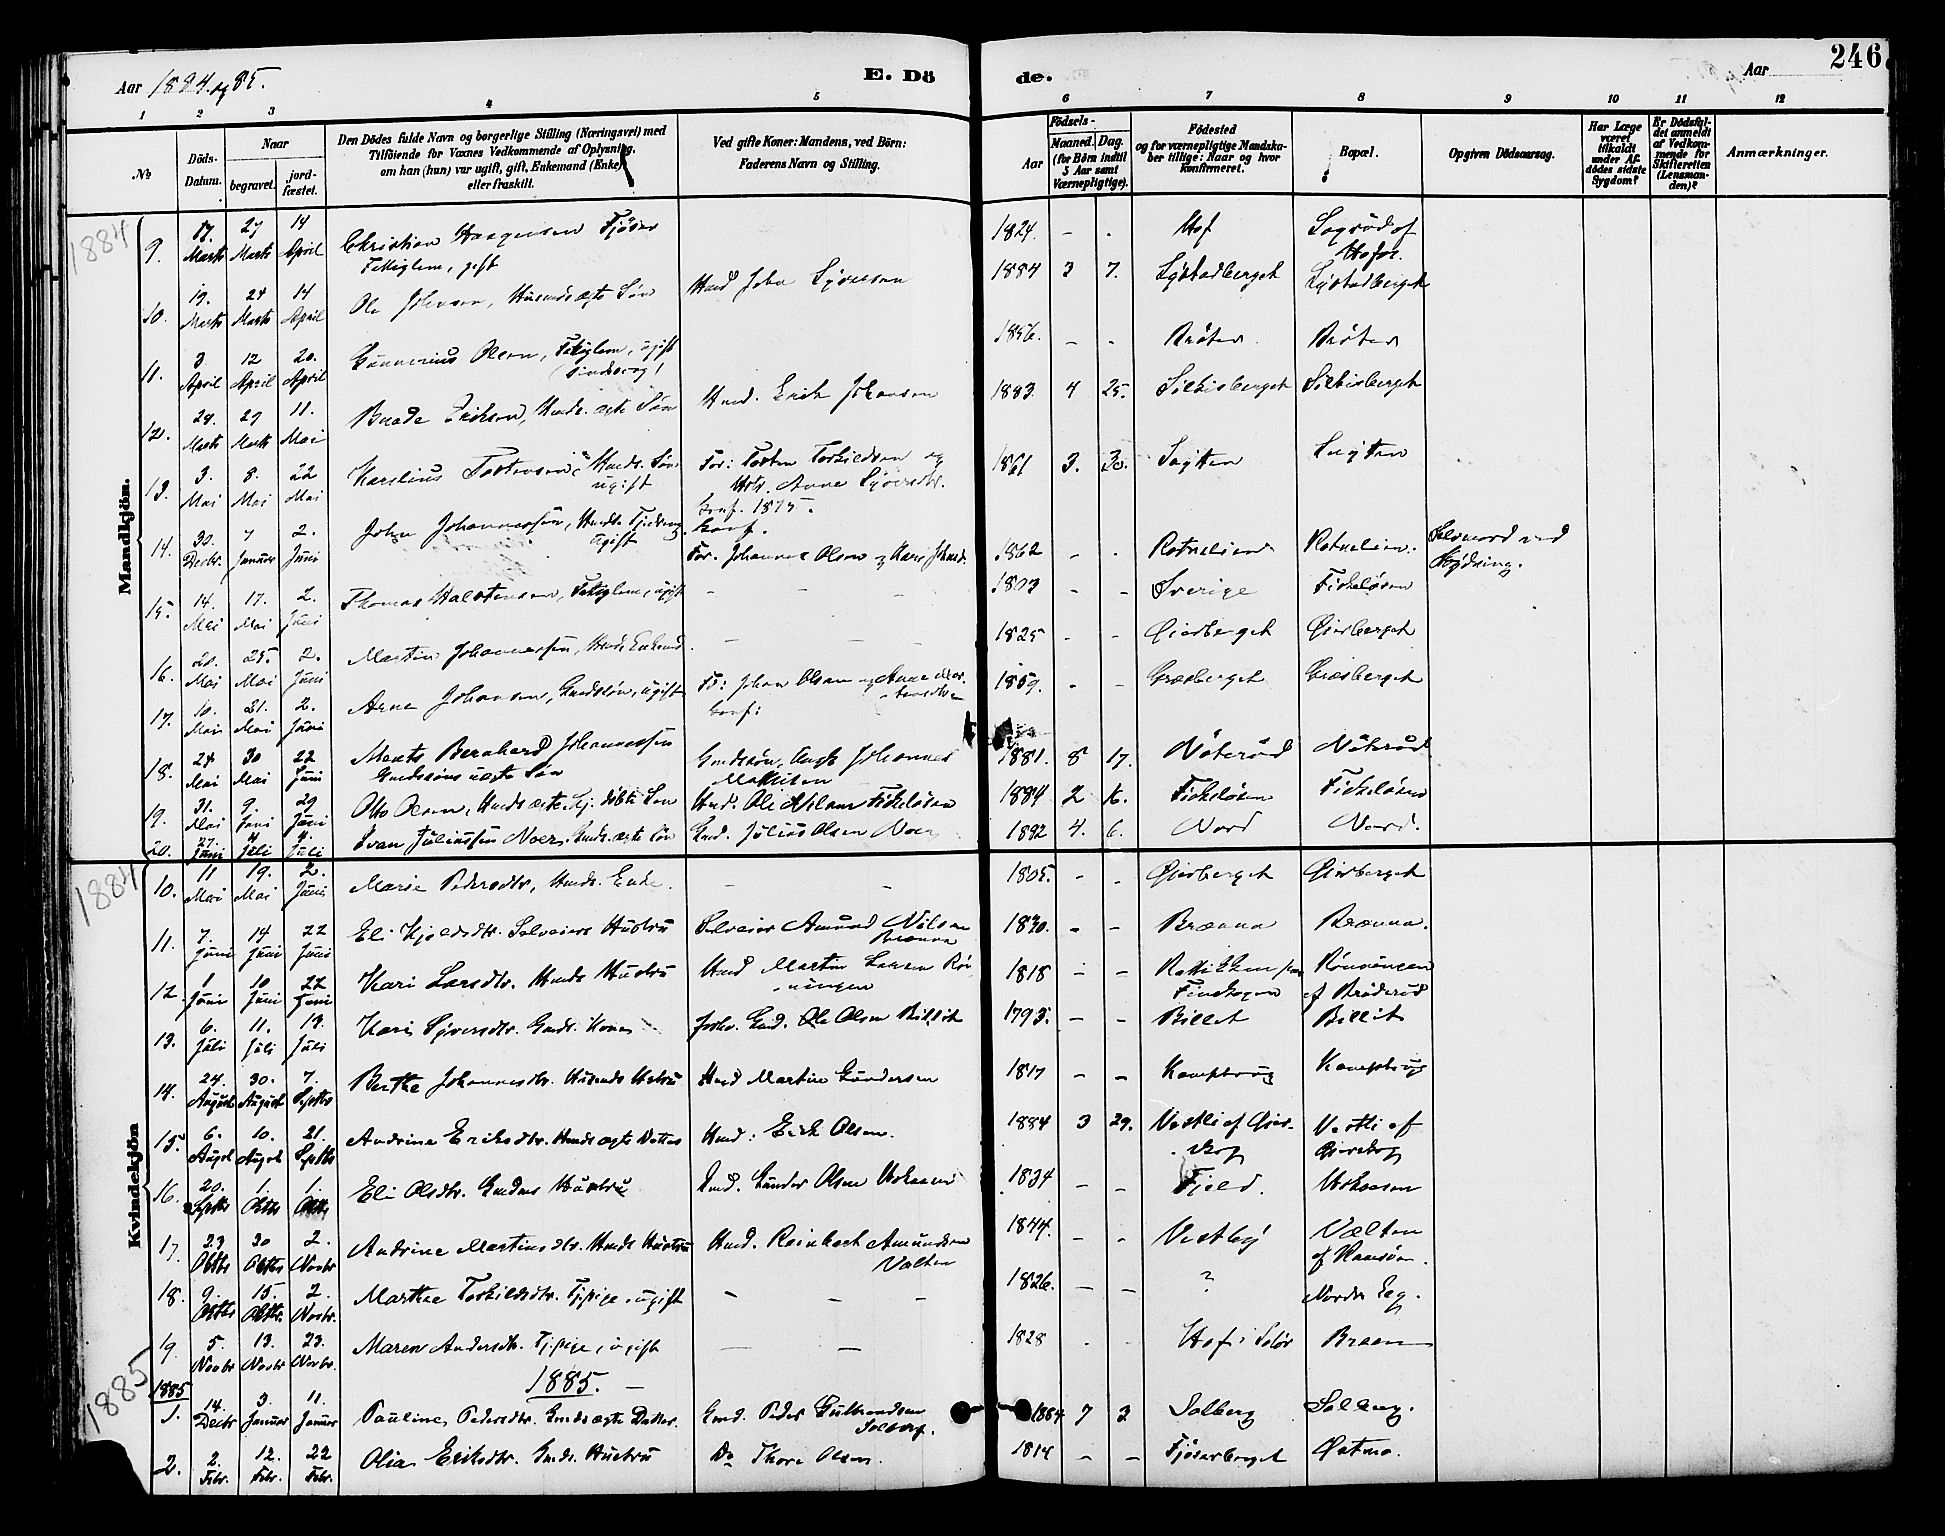 Aar 1884 og 85.
E. Dö
de.
Aar
246
1 2 3 4 5 6 7 8 9 10 11 12
No
Döds-Datum.
Naar
begravet.
jord-fæstet.
Den Dödes fulde Navn og borgerlige Stilling (Næringsvei) med
Tilföiende for Voxnes Vedkommende af Oplysning,
om han (hun) var ugift, gift, Enkemand (Enke)
eller fraskilt.
Ved gifte Koner: Mandens, ved Börn:
Faderens Navn og Stilling.
Födsels-
Aar
Maaned. Dag.
(for Börn indtil
5 Aar samt
Værnepligtige).
Födested
og for værnepligtige Mandska-
ber tillige: Naar og hvor
konfirmeret.
Bopæl.
Opgiven Dödsaarsag.
Har Læge
været
tilkaldt
under Af-
dödes sidste
Sygdom?
Er Dödsfal-
det anmeldt
af Vedkom-
mende for
Skifteretten
(Lensman-
den)?
Anmærkninger.
1884
Mandkjön.
9. 17. Marts 27 Marts 14 April Christian Haagensen Fjöser Fattiglem, gift 1824. - - Hof
10. 19. Marts 24 Marts 14 April Ole Johnsen, Husmds ægte Sön Hmd John Syversen 1884 3 7.
11. 3 April 12 April 20. April Gunnerius Olsen, Fattiglem, ugift 1856. - - Bröten Bröten
12. 24. Marts 29 Marts 11. Mai Eriksen, Hmds. ægte Sön Hmd. Erik Johansen 1883. 4 25. Silkisberget Silkisberget
13. 3. Mai 8. Mai 22 Mai Karelius Torstensen, Hmds. Sön ugift For: Torsten Torkildsen og Hstr. Anne Syversdtr. Conf. 1875. 1861 3. 30.
14. 30. Decbr. 7 Januar 2. Juni John Johannessen, ugift Conf. For. Johannes Olsen og Kari 1862 - - Rotnelien Rotnelien. Selvmord ved Skydning.
15. 14. Mai 17. Mai 2. Juni Thomas Halstensen, Fattiglem, ugift - - - 1803 - - Sverige Fiskelösen
16. 20. Mai 25. Mai 2. Juni Martin Johannessen, Hmds. Enkemd. - - - 1825 - - Gjerberget Gjerberget
17. 10. Mai 21. Mai 2. Juni Arne Johansen, Gmdssön, ugift F: Johan Olsen og Anne Conf: 1859. - - Græsberget Græsberget
18. 24 Mai 30 Mai 22 Juni Bernhard Johannessen Gmdssöns uægte Sön Gmdssön, Johannes 1881. 8 17. Nöteröd Nöteröd
19. 31. Mai 9. Juni 29 Juni Otto Olsen, Hmds ægte Hj. döbte Sön Hmd. Ole Nilsen Fiskelösen 1884 2 16. Fiskelösen Fiskelösen
20. 27. Juni 4 Juli 4. Juli Ivan Juliussen Noer. Gmds. ægte Sön Gmd. Julius Olsen Noer 1882 4. 6. Nord Nord.
1884
Kvindekjön
10. 11 Mai 19. Mai 2. Juni Marie Pedersdtr, Hmds. Enke. - - 1805. - - Gjerberget Gjerberget
11. 7. Juni 14 Juni 22 Juni Eli Kjeldsdtr. Selveiers Hustru Selveier Amund Nilsen Brænna 1830. - - Brænna Brænna.
12. 1 Juni 10 Juni 22 Juni Kari Larsdtr. Hmds Hustru Hmd Martin Larsen Rönningen 1818 - - Finskogen Rönningen af Bröderud
13. 6. Juli 11. Juli 19. Juli Kari Syversdtr. Gmds. Kone Gmd. Ole Olsen Billit 1793. - - Billit Billit
14. 24. August 30. August 7. Septbr Berthe Johannesdtr. Husmds Hustru Hmd Martin Gundersen 1817 - - Kamphaug Kamphaug
15. 6. August 10. August 21. Septbr Andrine Eriksdtr. Hmds ægte Datter Hmd: Erik Olsen. 1884 3 29. Vestli af Gjerskog Vestli af Gjerskog
16. 20. Septbr 1. Oktbr 1. Oktbr Eli Olsdtr. Gmdens Hustru Gmd. Gunder Olsen 1834 - - Fjeld.
17. 23 Oktbr 30 Oktbr 2. Novbr Andrine Martinusdtr. Hmds Hustru Hmd. Reinhart Amundsen Valten 1844. - - Vestby Valten
18. 9. Oktbr 15. Oktbr. 2 Novbr. Marthe Torkildsdtr. Tj.pige, ugift - - - 1826. - - ?
19 5. Novbr 13. Novbr 23. Novbr. Maren Andersdtr. Tj.pige, ugift - - 1828 - - Hof i Solör Braaen
1885
1885. -
1885
1. 14. Decbr 3. Januar 11. Januar Pauline Pedersdtr. Gmds ægte Datter. Gmd. Peder Gulbrandsen Solberg. 1884 7 3 Solberg Solberg.
2. 2. Febr. 12. Febr. 22 Febr. Olia Eriksdtr. Gmds. Hustru Do Thore Olsen. 1814 - - Fjöserberget